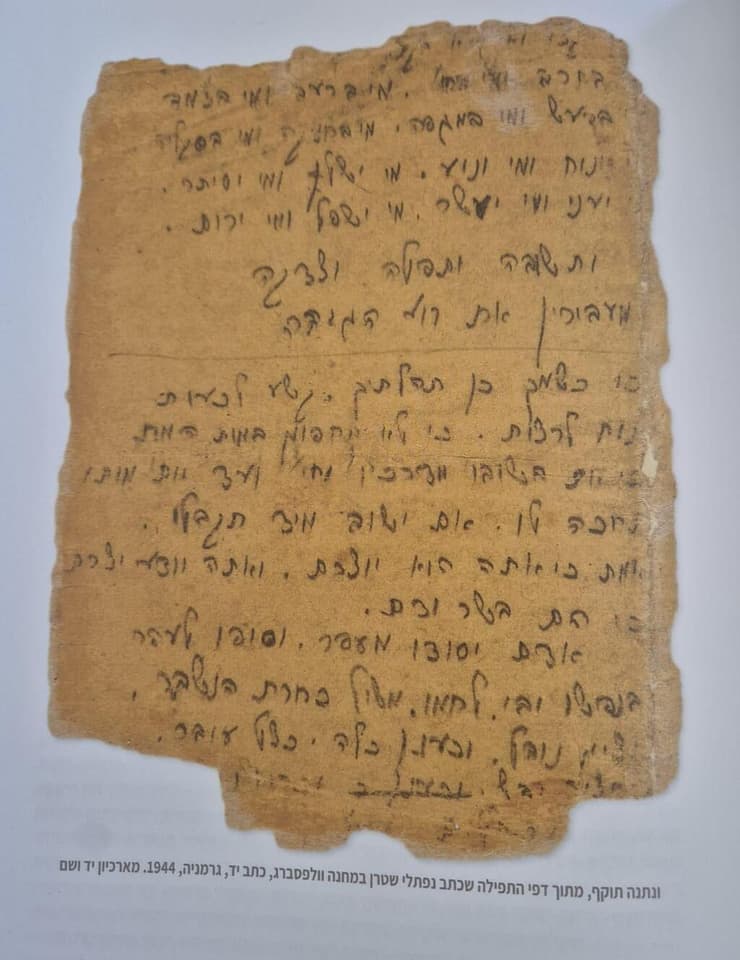 בחרב ומי בחיה. מי ברעב ומי בצמא
ברעש ומי במגפה. מי בחניקה ומי בסקילה
ינוח ומי ינוע. מי ישלו ומי יסיתר.
יעני ומי יעשר. מי ישפל ומי ירום.
ותשובה ותפילה וצדקה
מעבירין את רוע הגזרה
כי כשמך כן תהלתך. קשה לכעוס
נוח לרצות. כי לא תחפוץ במות המת
כי אם בשובו מדרכו וחי ועד יום מותו
תחכה לו. אם ישוב מיד תקבלו.
אמת כי אתה הוא יוצרם. ואתה יודע יצרם
כי הם בשר ודם.
אדם יסודו מעפר. וסופו לעפר
בנפשו יביא לחמו. משול כחרס הנשבר.
נובל. וכענן כלה. כצל עובר.
ונתנה תוקף, מתוך דפי התפילה שכתב נפתלי שטרן במחנה וולפסברג, כתב יד, גרמניה, 1944. מארכיון יד ושם